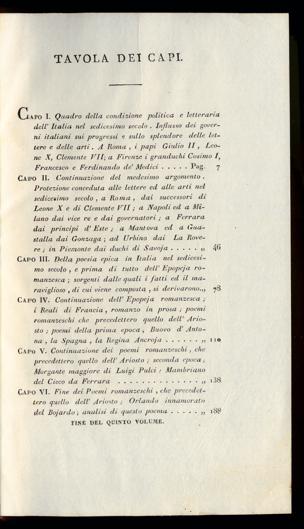 TAVOLA DEI CAPI.
CAPO I. Quadro della condizione politica e letteraria
dell' Italia nel sedicesimo secolo. Influsso dei gover-
ni italiani sui progressi e sullo splendore delle let-
tere e delle arti. A Roma, i papi Giulio II, Leo-
ne X, Clemente VII; a Firenze i granduchi Cosimo I,
Francesco e Ferdinando de' Medici ..... Pag. 7
CAPO II. Continuazione del medesimo argomento.
Protezione conceduta alle lettere ed alle arti nel
sedicesimo secolo, a Roma, dai successori di
Leone X e di Clemente VII; a Napoli ed a Mi-
lano dai vice re e dai governatori; a Ferrara
dai principi d'Este; a Mantova ed a Gua-
stalla dai Gonzaga; ad Urbino dai La Rove-
re; in Piemonte dai duchi di Savoja ..... „ 46
CAPO III. Della poesia epica in Italia nel sedicesi-
mo secolo, e prima di tutto dell' Epopeja ro-
manzesca; sorgenti dalle quali i fatti ed il ma-
raviglioso, di cui viene composta, si derivarono.„ 78
CAPO IV. Continuazione dell' Epopeja romanzesca;
i Reali di Francia, romanzo in prosa; poemi
romanzeschi che precedettero quello dell' Ario-
sto; poemi della prima epoca, Buovo d' Anto-
na, la Spagna, la Regina Ancroja ....... „ 110
CAPO V. Continuazione dei poemi romanzeschi, che
precedettero quello dell' Ariosto; seconda epoca;
Morgante maggiore di Luigi Pulci; Mambriano
del Cieco da Ferrara .............. „ 138
CAPO VI. Fine dei Poemi romanzeschi, che precedet-
tero quello dell' Ariosto; Orlando innamorato
del Bojardo; analisi di questo poema ..... „ 188
FINE DEL QUINTO VOLUME.